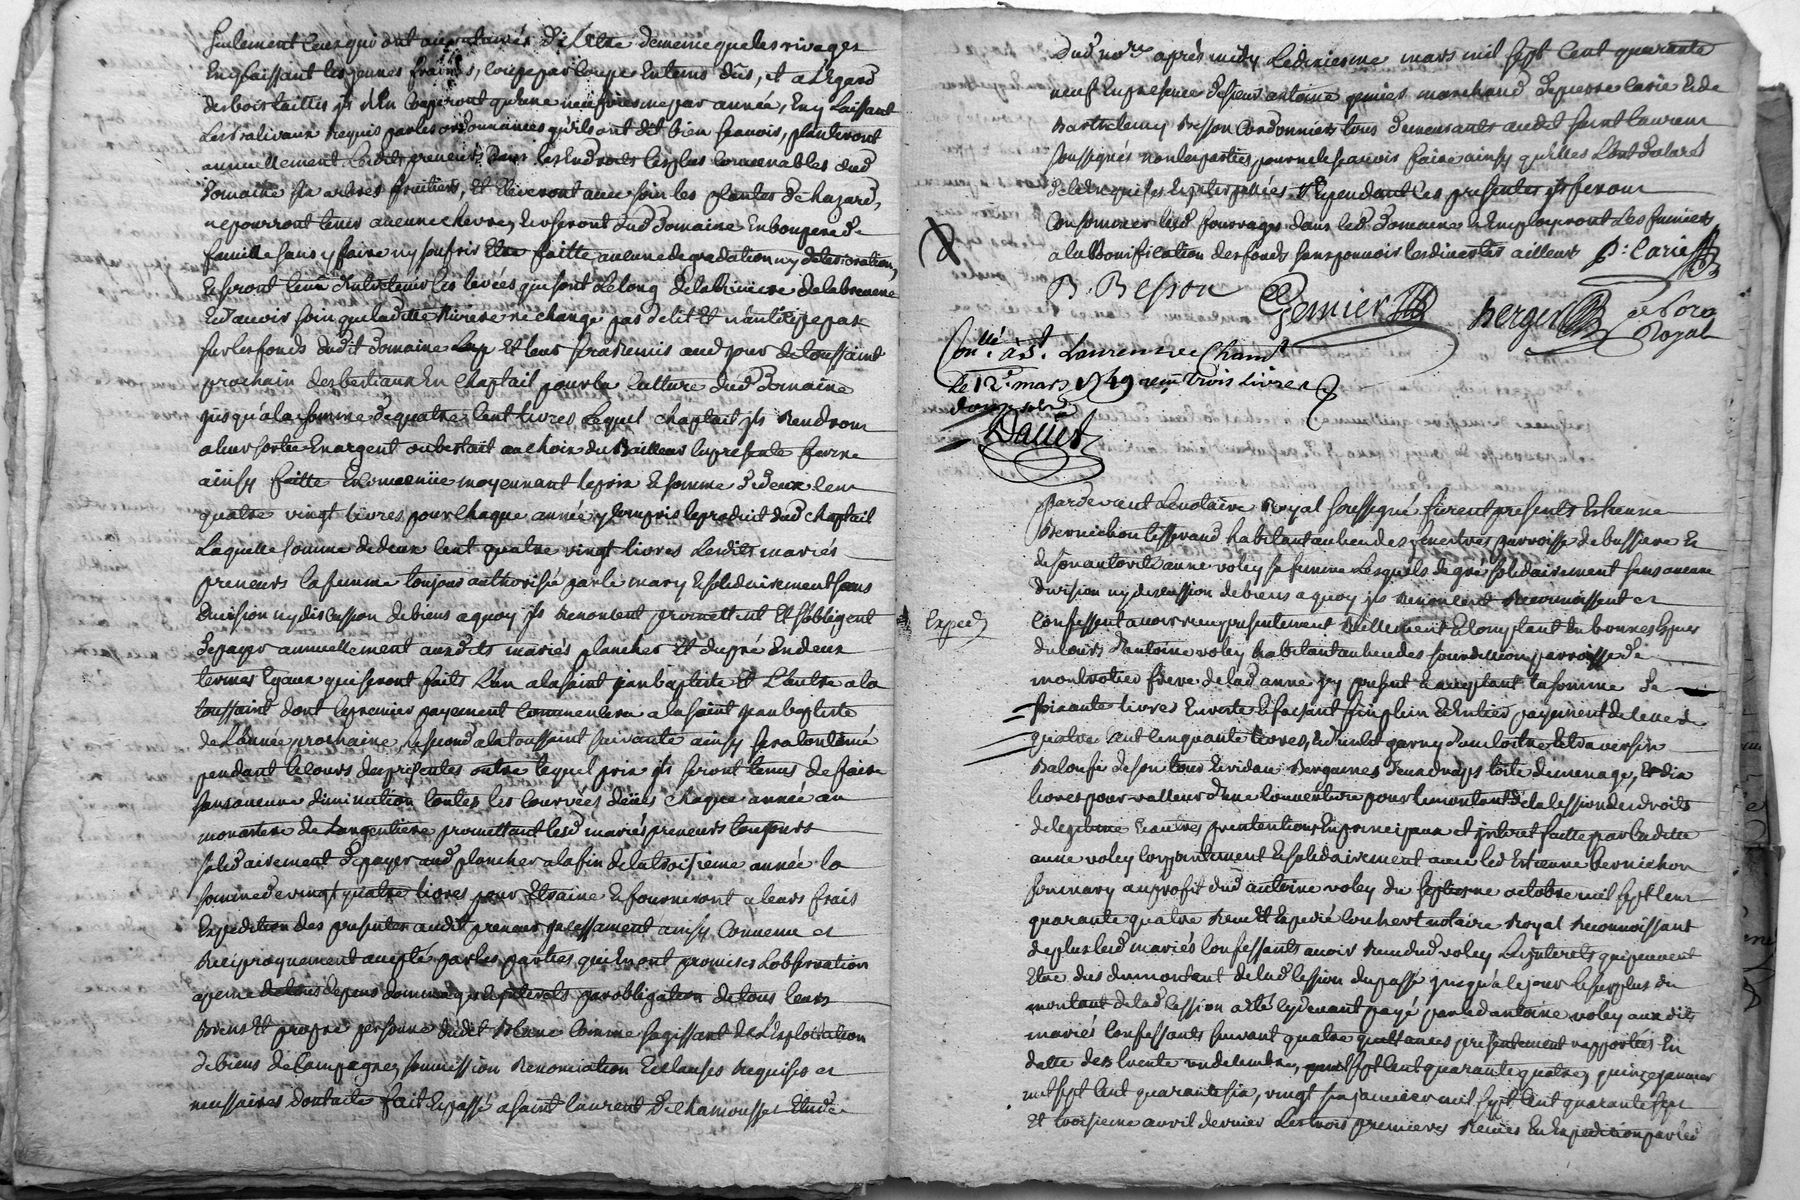 seulement ceux qui ont accoutumés d'Estre de meme que les rivages
En y laissant les jeunes fraines, coupe par coupe En tems dûs, et a L'Egard
des bois taillis ils n'En Couperont qu'une neufvieme par année, En y Laissant
Les balivaux Requis par les ordonnances qu'ils ont dit bien scavoir, planteront
annuellement lesdits preneurs Dans les Endroits les plus Convenables dud
Domaine six arbres fruitiers, Et Eleveront avec soin les plantes De hazard,
ne pourront tenir aucune chevre, Useront dud Domaine En bon pere de
famille sans y faire ny soufrir Etre faitte aucune degradation ny deterioration,
Et seront tenus d'Entretenir les levées qui sont Le long De la Riviere de la brevenne
Et d'avoir soin que laditte Riviere ne change pas de lit Et n'antisipe pas
sur les fonds dudit Domaine Et leur sera remis aud jour de toussaint
prochain des bestiaux En Chaptail pour la Culture dud Domaine
jusqu'a la somme de quatre Cent livres Lequel Chaptail ils Rendront
a leur sortie En argent ou bestail au choix du Bailleur la presente ferme
ainsy faitte Et Convenüe moyennant le prix Et somme De deux Cent
quatre vingt livres pour Chaque année y Compris le produit dud Chaptail
Laquelle somme de deux Cent quatre vingt livres Lesdits mariés
preneurs la femme toujours authorisée par le mary Et solidairement sans
Division ny discussion de biens a quoy ils Renoncent promettent Et s'obligent
De payer annuellement auxdits mariés plancher Et dupré En deux
termes Egaux qui seront faits L'un a la saint jean baptiste Et L'autre a la
toussaint dont le premier payement Commencera a la saint jean baptiste
de L'année prochaine le second a la toussaint suivante ainsy sera Continué
pendant le Cours des presentes outre lequel prix ils seront tenus de faire
sans aucune diminution toutes les Courvées deües chaque année au
monastere de Largentiere promettant lesd mariés preneurs toujours
solidairement De payer aud plancher a la fin de la troisieme année la
somme de vingt quatre livres pour Etraine Et fourniront a leurs frais
Expedition des presentes audit ainsy Convenu et
Reciproquement accepté par les parties qui En ont promises L'observation
a peine de tous depens dommages Et interets par obligation de tous leurs
Biens Et propre personne dudit Comme s'agissant de L'Exploitation
de biens de Campagne, soumission Renonciation Et clauses Requises et
necessaires dont acte fait Et passé a saint laurent De chamousset Etude
Dud no.re après midy Le dixiesme mars mil sept Cent quarante
neuf En presence De sieurs antoine genier marchand De pierre Carie Et de
Barthelemy Besson Cordonniers tous Demeurants audit saint laurent
soussignés non les parties pour ne le scavoir faire ainsy qu'Elles L'ont Declaré
De ce Enquises Et interpellées Et pendant Ces presentes ils feront
Consommer lesd fourrages dans led Domaine Et Employeront Les fumiers
a la Bonification des fonds sans pouvoir les divertir ailleurs P: Carie
B. Besson Genier Berger No.re Royal
Con.llé à S.t Laurent de Cham.t
Le 12.e mars 1749 reçu trois Livres
Daniel
Par devant Le notaire Royal soussigné furent presents Estienne
Bernichon tisserand habitant au lieu des fenetres parroisse de bussiere Et
de son autorité anne voley sa femme Lesquels de gré solidairement sans aucune
division ny discussion de biens a quoy ils Renoncent Reconnoissent et
Exped
Confessent avoir reçu presentement Réellement Et Comptant En bonnes Especes
du Cours D'antoine voley habitant au lieu des parroisse De
montrotier frere de lad anne icy present Et acceptant la somme De
soixante livres En reste Et faisant fin plein Et Entier payement de Celle de
quatre cent Cinquante livres, d'un lit garny d'un Coitre Et traversin
Et dix
livres pour valleur d'une Couverture pour le montant De la Cession des droits
de legitime Et autres pretentions En principaux et interet faitte par laditte
anne voley Conjointement Et solidairement avec led Estienne Bernichon
son mary au profit dud antoine voley du septieme octobre mil sept Cent
quarante quatre Reçu Et Expedié Couhert notaire Royal Reconnoissant
De plus lesd mariés Confessants avoir Reçu dud voley Les interets qui peuvent
Etre dus du montant de lad Cession du passé jusqu'a ce jour le surplus du
montant de lad Cession a Eté cy devant payé par led antoine voley auxdits
mariés Confessants suivant quatre quittances presentement rapportées En
datte des trente un decembre, mil sept Cent quarante quatre, quinze janvier
mil sept Cent quarante six, vingt six janvier mil sept Cent quarante sept
Et troisieme avril dernier Les trois premieres Reçues En Expedition par led